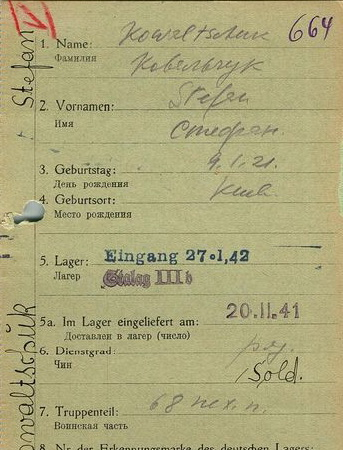 664
Stefan
1. Name: Kowaltschuk
Фамилия Ковальчук
2. Vornamen: Stefan
Имя Стефан.
3. Geburtstag: 9.1.21.
День рождения
4. Geburtsort: Киев
Место рождения
5. Lager: Eingang 27.1.42
Лагерь Stalag III b
5a. Im Lager eingeliefert am: 20.11.41
Доставлен в лагерь (число)
6. Dienstgrad: ряд.
Чин Sold.
7. Truppenteil: 68 пех. п.
Воинская часть
8. Nr. der Erkennungsmarke des deutschen Lagers: